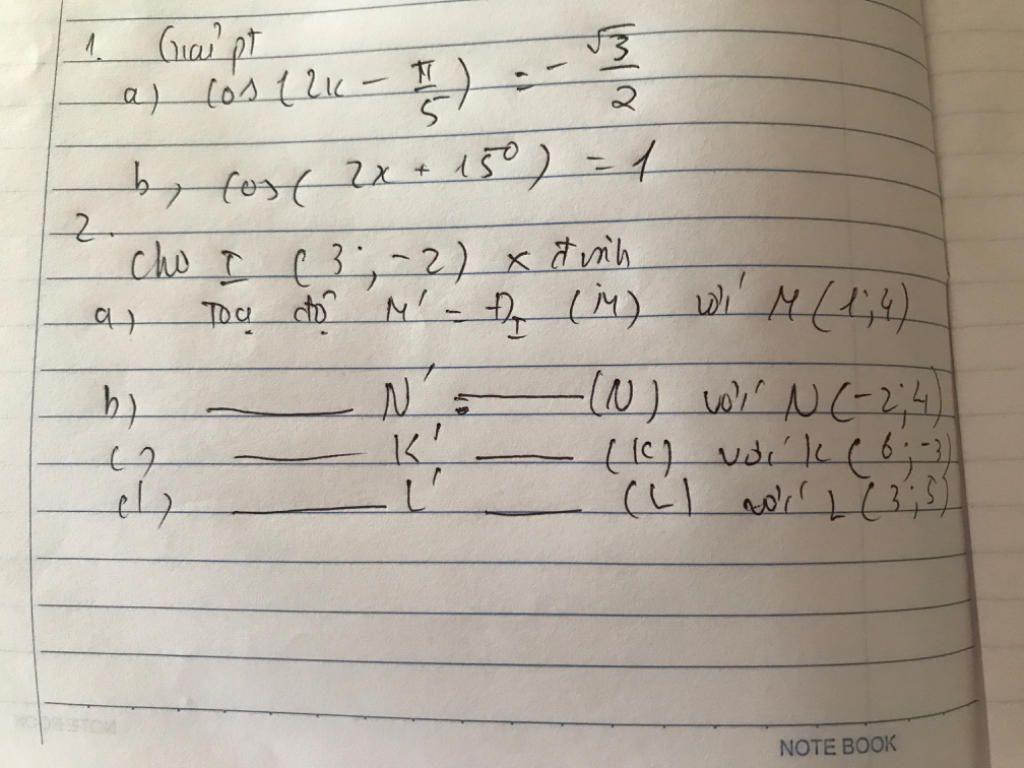 1. Giải pt
a) cos(2x - π/5) = - √3/2
b, cos( 2x + 15⁰) = 1
2.
Cho I (3 ; -2) x định
a) Toạ độ M' = Đ_I (M) với M (1 ; 4)
b) ——— N' = ——— (N) với N (-2 ; 4)
c) ——— K' ——— (K) với K (6 ; -3)
d) ——— L' ——— (L) với L (3 ; 5)
NOTE BOOK